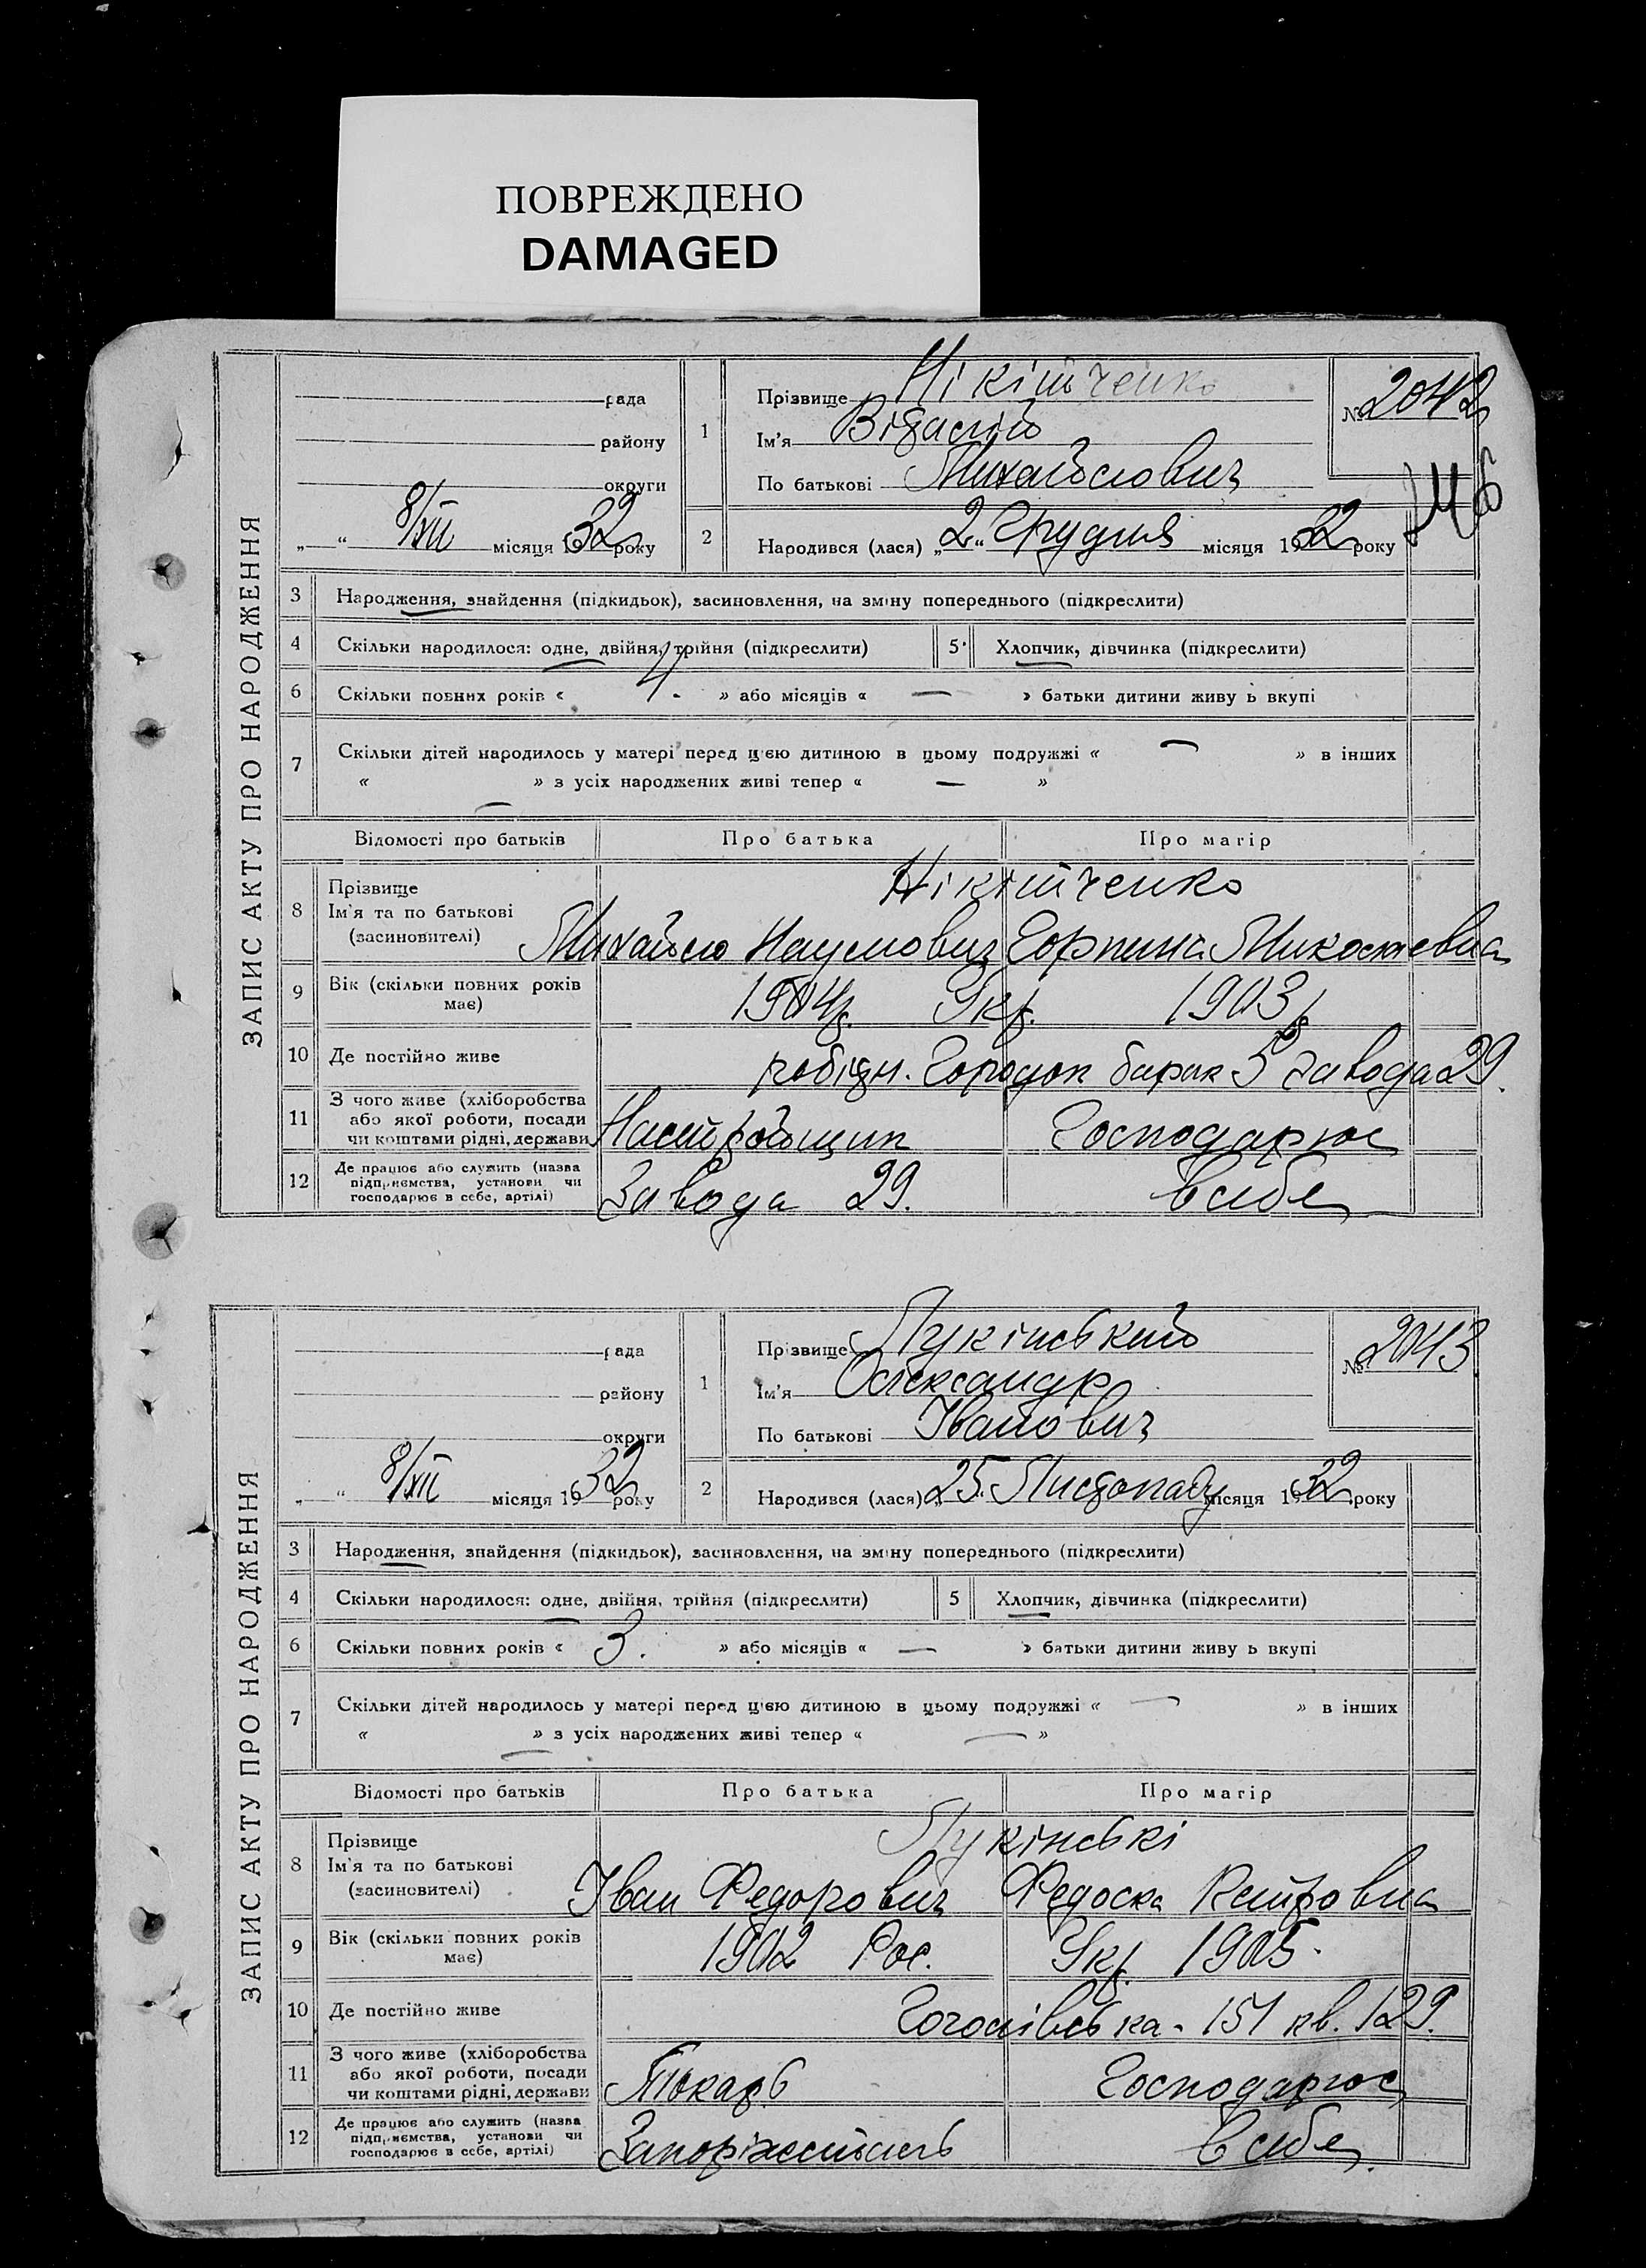 ПОВРЕЖДЕНО
DAMAGED
ЗАПИС АКТУ ПРО НАРОДЖЕННЯ
рада
району
округи
„ “ 8/XII місяця 1932 року
1
Прізвище Нікітченко
Ім'я Віталій
По батькові Михайлович
№ 2042
2 Народився (лася) „2“ Грудня місяця 1932 року
3 Народження, знайдення (підкидьок), засиновлення, на зміну попереднього (підкреслити)
4 Скільки народилося: одне, двійня, трійня (підкреслити) 5 Хлопчик, дівчинка (підкреслити)
6 Скільки повних років « 4. » або місяців « — » батьки дитини живу ь вкупі
7 Скільки дітей народилось у матері перед цією дитиною в цьому подружжі « — » в інших
« — » з усіх народжених живі тепер « — »
Відомості про батьків Про батька Про матір
8 Прізвище Нікітченко
Ім'я та по батькові
(засиновителі) Михайло Наумович Горпина Миколаевна
9 Вік (скільки повних років має) 1904р. Укр. 1903р
10 Де постійно живе робітн. Городок барак 5 завода 29.
11 З чого живе (хліборобства
або якої роботи, посади
чи коштами рідні, держави Настройщик Господарює
12 Де працює або служить (назва
підприємства, установи чи
господарює в себе, артілі) Завода 29. в себе
ЗАПИС АКТУ ПРО НАРОДЖЕННЯ
рада
району
округи
„ “ 8/XII місяця 1932 року
1
Прізвище Лукінський
Ім'я Олександр
По батькові Іванович
№ 2043
2 Народився (лася) 25. Листопаду місяця 1932 року
3 Народження, знайдення (підкидьок), засиновлення, на зміну попереднього (підкреслити)
4 Скільки народилося: одне, двійня, трійня (підкреслити) 5 Хлопчик, дівчинка (підкреслити)
6 Скільки повних років « 3. » або місяців « — » батьки дитини живу ь вкупі
7 Скільки дітей народилось у матері перед цією дитиною в цьому подружжі « — » в інших
« — » з усіх народжених живі тепер « — »
Відомості про батьків Про батька Про матір
8 Прізвище Лукінські
Ім'я та по батькові
(засиновителі) Іван Федорович Федоска Петровна
9 Вік (скільки повних років має) 1902 Рос. Укр. 1905.
10 Де постійно живе Гоголівська - 151 кв. 129.
11 З чого живе (хліборобства
або якої роботи, посади
чи коштами рідні, держави Токарь Господарює
12 Де працює або служить (назва
підприємства, установи чи
господарює в себе, артілі) Запоріжсталь в себе.